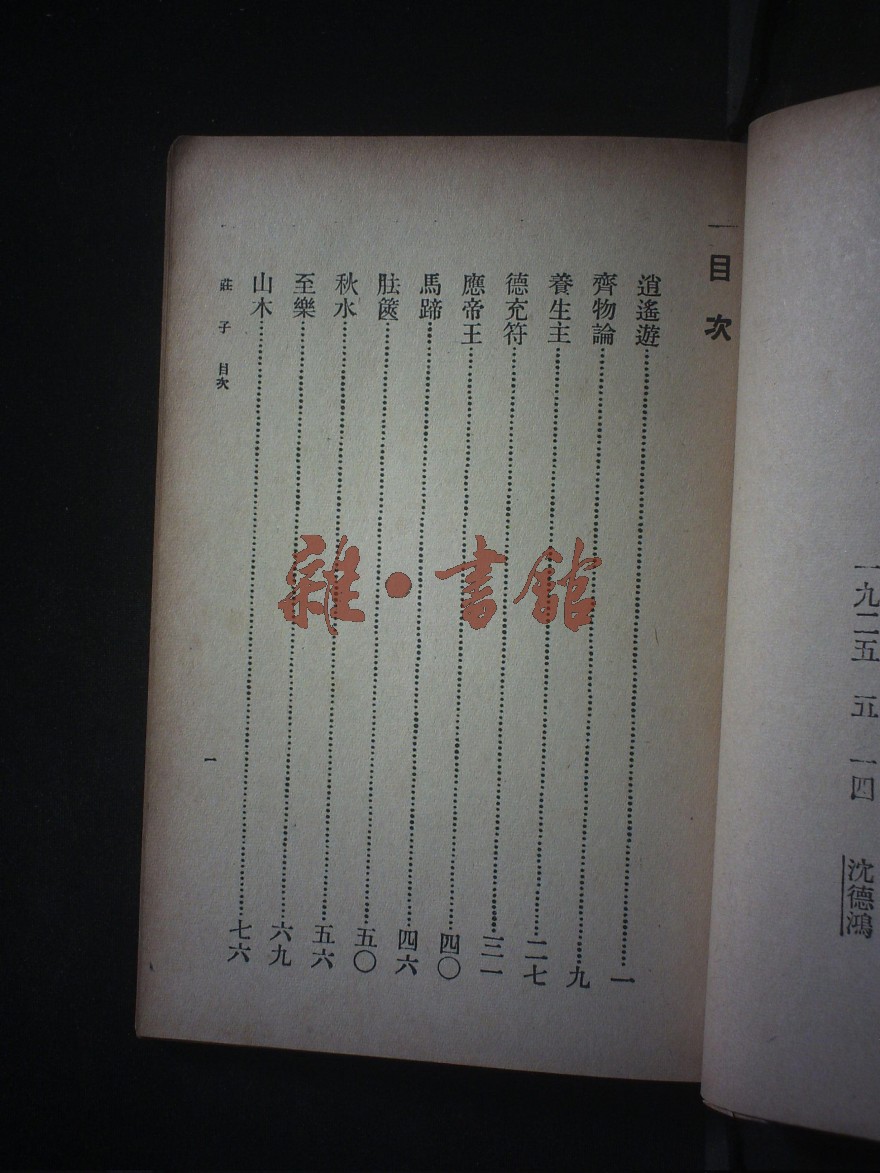 一九二五 五 一四 沈德鴻
目次
逍遙遊 一
齊物論 九
養生主 二七
德充符 三一
應帝王 四〇
馬蹄 四六
胠篋 五〇
秋水 五六
至樂 六九
山木 七六
莊子 目次 一
雜·書館